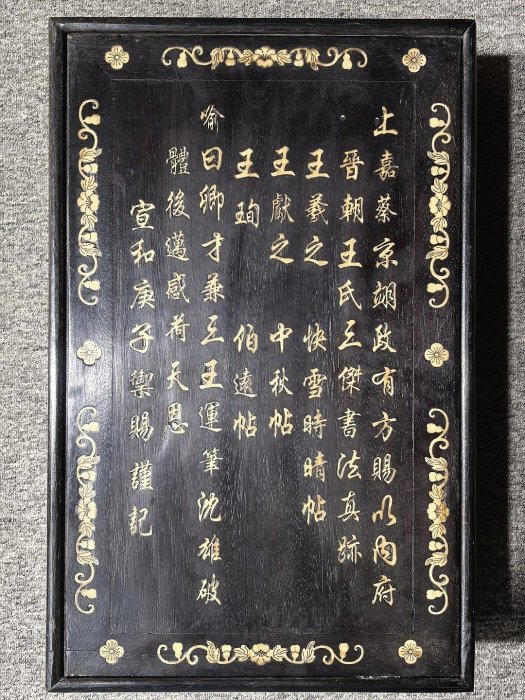 上嘉蔡京翊政有方賜以內府
晉朝王氏三傑書法真跡
王羲之 快雪時晴帖
王獻之 中秋帖
王珣 伯遠帖
喻曰卿才兼三王運筆沈雄破
體後邁感荷天恩
宣和庚子禦賜謹記